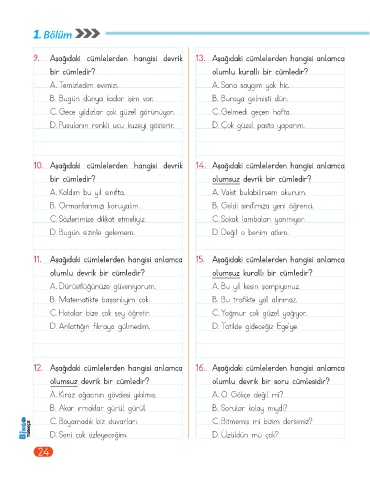 1. Bölüm
9. Aşağıdaki cümlelerden hangisi devrik
bir cümledir?
A. Temizledim evimizi.
B. Bugün dünya kadar işim var.
C. Gece yıldızlar çok güzel görünüyor.
D. Pusulanın renkli ucu kuzeyi gösterir.
10. Aşağıdaki cümlelerden hangisi devrik
bir cümledir?
A. Kaldım bu yıl sınıfta.
B. Ormanlarımızı koruyalım.
C. Sözlerimize dikkat etmeliyiz.
D. Bugün sizinle gelemem.
11. Aşağıdaki cümlelerden hangisi anlamca
olumlu devrik bir cümledir?
A. Dürüstlüğünüze güveniyorum.
B. Matematikte başarılıyım çok.
C. Hatalar bize çok şey öğretir.
D. Anlattığın fıkraya gülmedim.
12. Aşağıdaki cümlelerden hangisi anlamca
olumsuz devrik bir cümledir?
A. Kiraz ağacının gövdesi yıkılmış.
B. Akar ırmaklar gürül gürül.
C. Boyamadık biz duvarları.
D. Seni çok özleyeceğim.
13. Aşağıdaki cümlelerden hangisi anlamca
olumlu kurallı bir cümledir?
A. Sana saygım yok hiç.
B. Buraya gelmişti dün.
C. Gelmedi geçen hafta.
D. Çok güzel pasta yaparım.
14. Aşağıdaki cümlelerden hangisi anlamca
olumsuz devrik bir cümledir?
A. Vakit bulabilirsem okurum.
B. Geldi sınıfımıza yeni öğrenci.
C. Sokak lambaları yanmıyor.
D. Değil o benim atkım.
15. Aşağıdaki cümlelerden hangisi anlamca
olumsuz kurallı bir cümledir?
A. Bu yıl kesin şampiyonuz.
B. Bu trafikte yol alınmaz.
C. Yağmur çok güzel yağıyor.
D. Tatilde gideceğiz Ege'ye.
16. Aşağıdaki cümlelerden hangisi anlamca
olumlu devrik bir soru cümlesidir?
A. O Gökçe değil mi?
B. Sorular kolay mıydı?
C. Bitmemiş mi bizim dersimiz?
D. Üzüldün mü çok?
BİNGO
TÜRKÇE
24